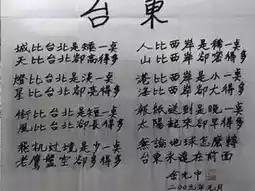 台東
城比台北是矮一奌
天比台北卻高得多
燈比台北是淡一奌
星比台北卻亮得多
街比台北是短一奌
風比台北卻長得多
飛機过境是少一奌
老鷹盤空卻多得多
人比西岸是稀一奌
山比西岸卻密得多
港比西岸是小一奌
海比西岸卻大得多
報紙送到是晚一奌
太陽起來卻早得多
無論地球怎麼轉
台東永遠在前面
余光中
二００九年元月